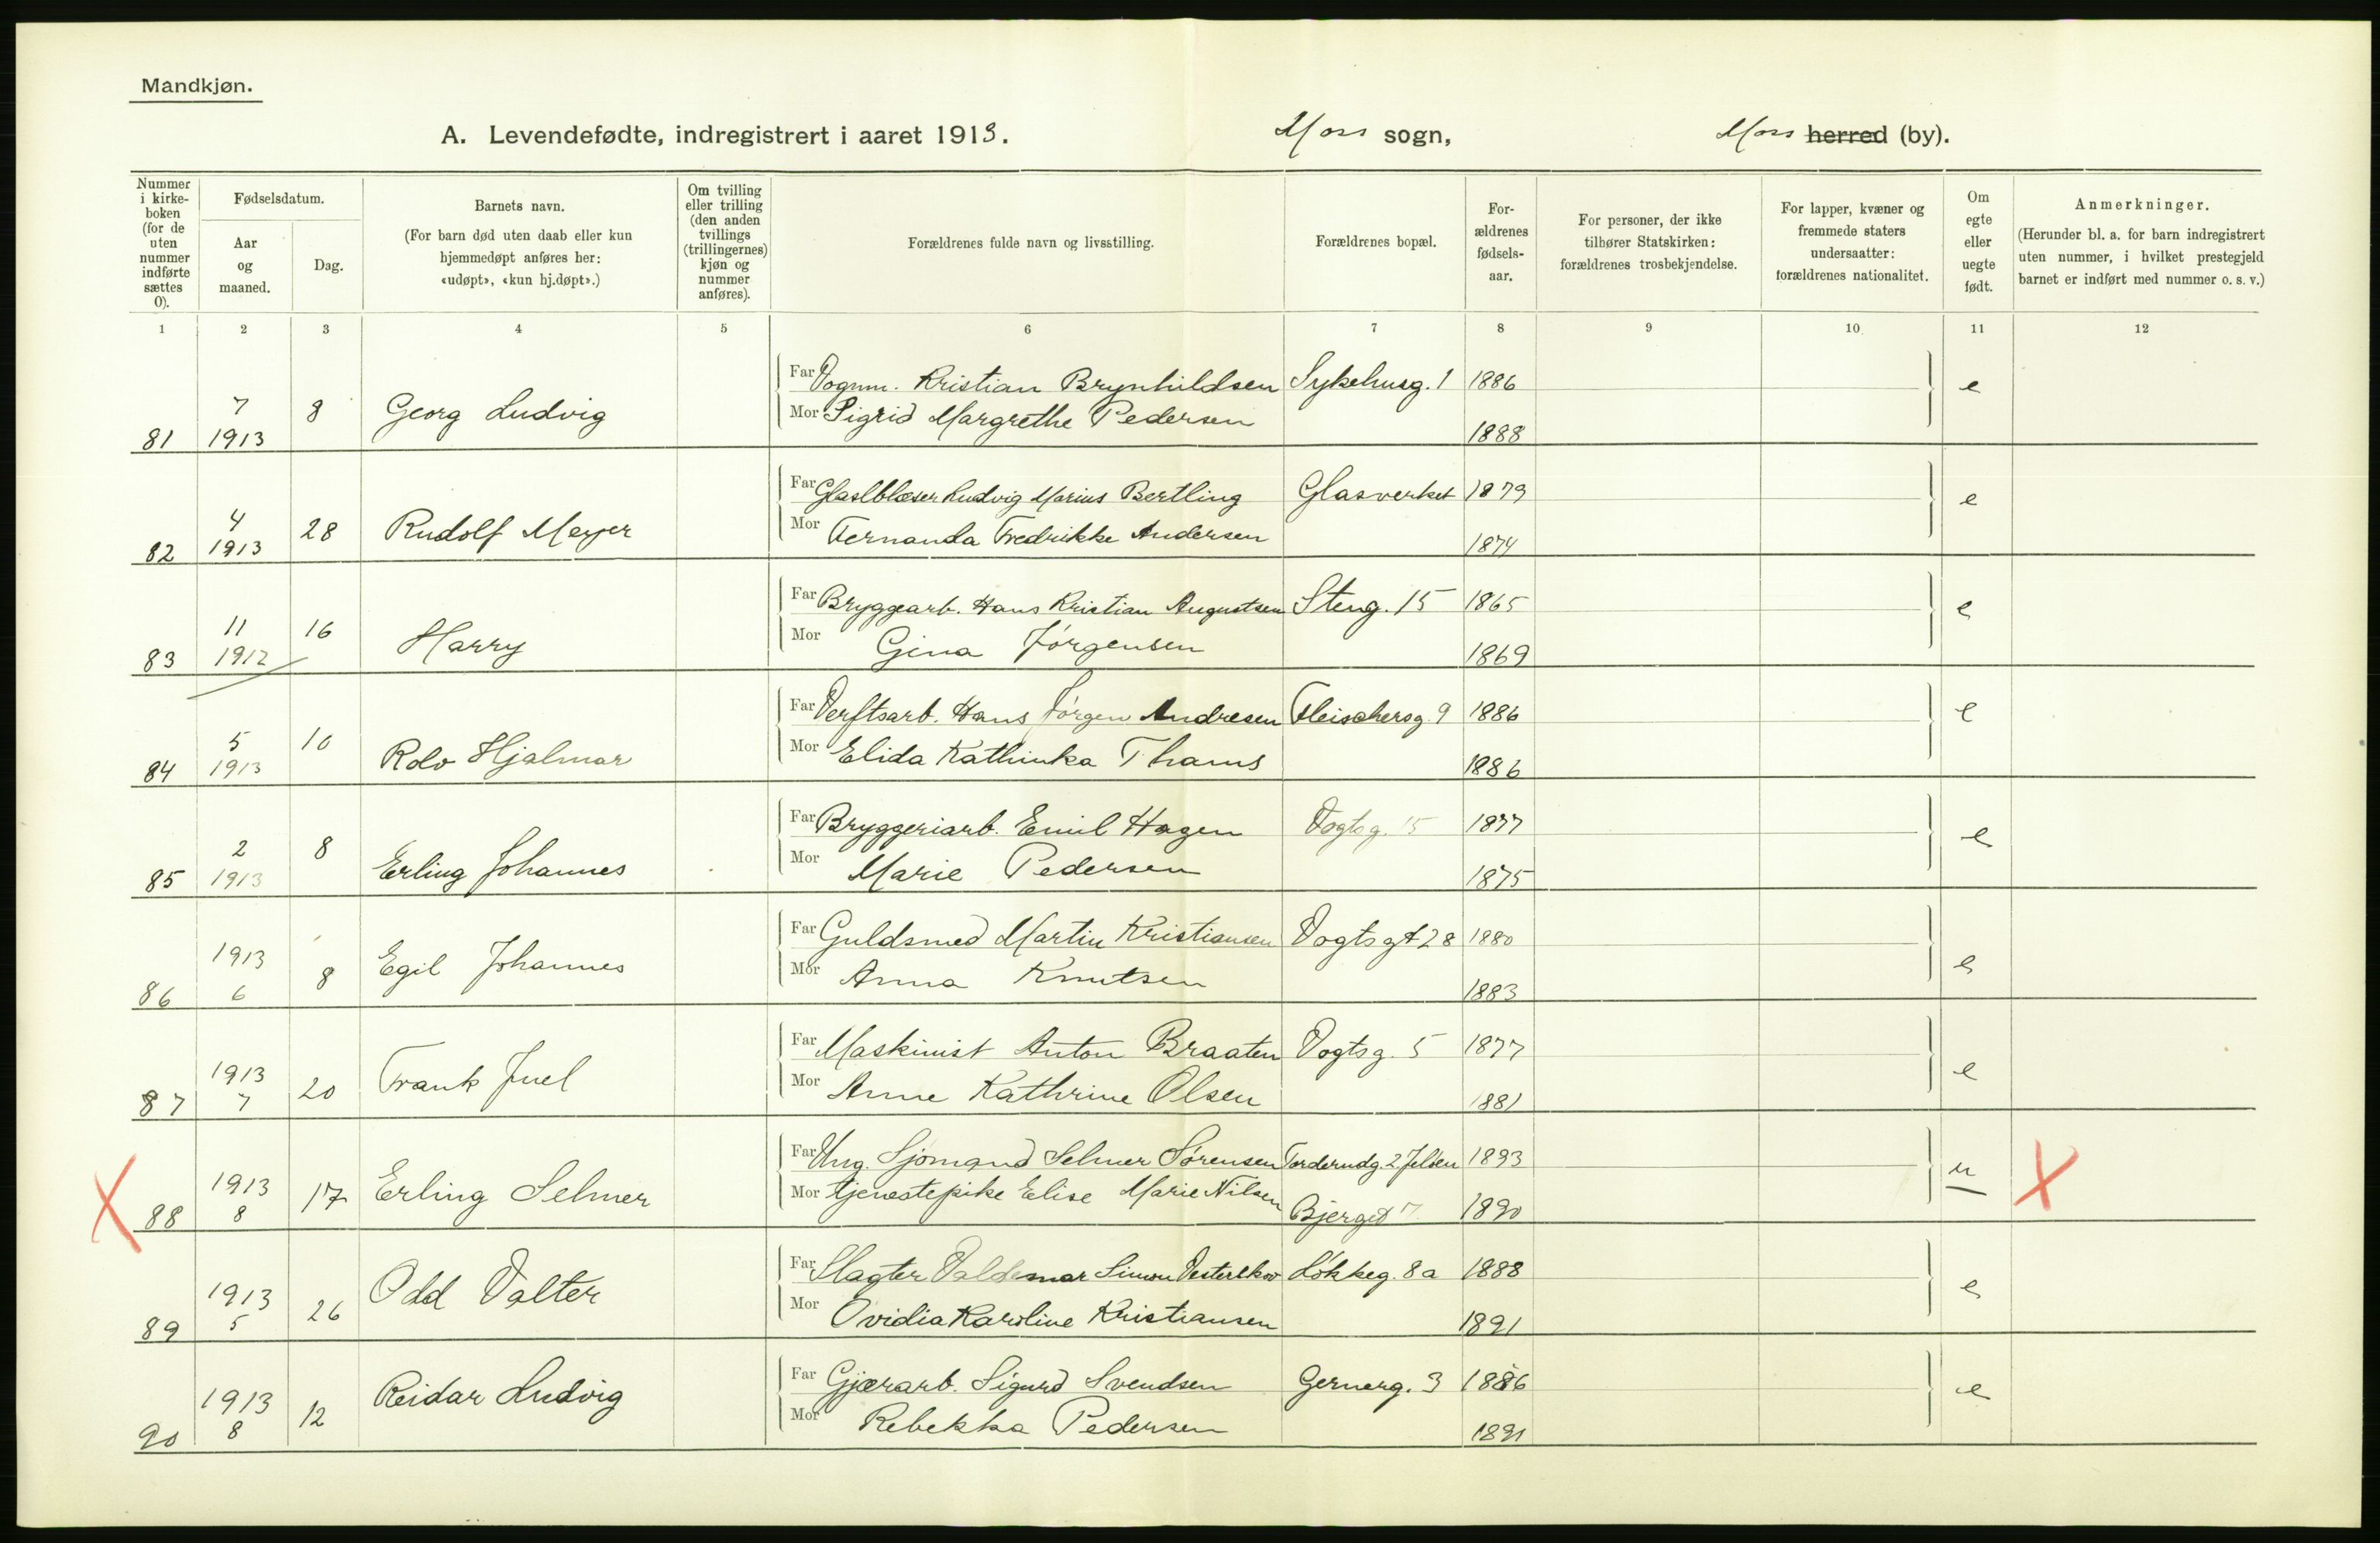 Mandkjøn.
A. Levendefødte, indregistrert i aaret 1913. Moss sogn, Moss herred (by).
Nummer i kirke-boken (for de uten nummer indførte sættes 0).
Fødselsdatum.
Aar og maaned.
Dag.
Barnets navn.
(For barn død uten daab eller kun hjemmedøpt anføres her: «udøpt», «kun hj.døpt».)
Om tvilling eller trilling (den anden tvillings (trillingernes) kjøn og nummer anføres).
Forældrenes fulde navn og livsstilling.
Forældrenes bopæl.
For-ældrenes fødsels-aar.
For personer, der ikke tilhører Statskirken: forældrenes trosbekjendelse.
For lapper, kvæner og fremmede staters undersaatter: forældrenes nationalitet.
Om egte eller uegte født.
Anmerkninger.
(Herunder bl. a. for barn indregistrert uten nummer, i hvilket prestegjeld barnet er indført med nummer o. s. v.)
1 2 3 4 5 6 7 8 9 10 11 12
Far Vognm. Kristian Brynhildsen Sykehusg. 1 1886 e
81 7 1913 8 Georg Ludvig Mor Sigrid Margrethe Pedersen 1888
Far Glaslblæser Ludvig Marius Bertling Glasverket 1879 e
82 4 1913 28 Rudolf Meyer Mor Fernanda Fredrikke Andersen 1874
Far Bryggearb. Hans Kristian Augustsen Steng. 15 1865 e
83 11 1912 16 Harry Mor Gina Jørgensen 1869
Far Verftsarb. Hans Jørgen Andresen Fleischersg. 9 1886 e
84 5 1913 10 Rolv Hjalmar Mor Elida Kathinka Thams 1886
Far Bryggeriarb. Emil Hagen Vogtsg. 15 1877 e
85 2 1913 8 Erling Johannes Mor Marie Pedersen 1875
Far Guldsmed Martin Kristiansen Vogtsgt 28 1880 e
86 1913 6 8 Egil Johannes Mor Anna Knutsen 1883
Far Maskinist Anton Braaten Vogtsg. 5 1877 e
87 1913 7 20 Frank Juel Mor Anne Kathrine Olsen 1881
Far Ung. Sjømand Selmer Sørensen 2 Jeløen 1893 u
88 1913 8 17 Erling Selmer Mor tjenestepike Elise Marie Nilsen Bjerget 7 1890
Far Slagter Valdemar Simon Løkkeg. 8a 1888 e
89 1913 5 26 Odd Valter Mor Ovidia Karoline Kristiansen 1891
Far Gjærarb. Sigurd Svendsen Gernerg. 3 1886 e
90 1913 8 12 Reidar Ludvig Mor Rebekka Pedersen 1891